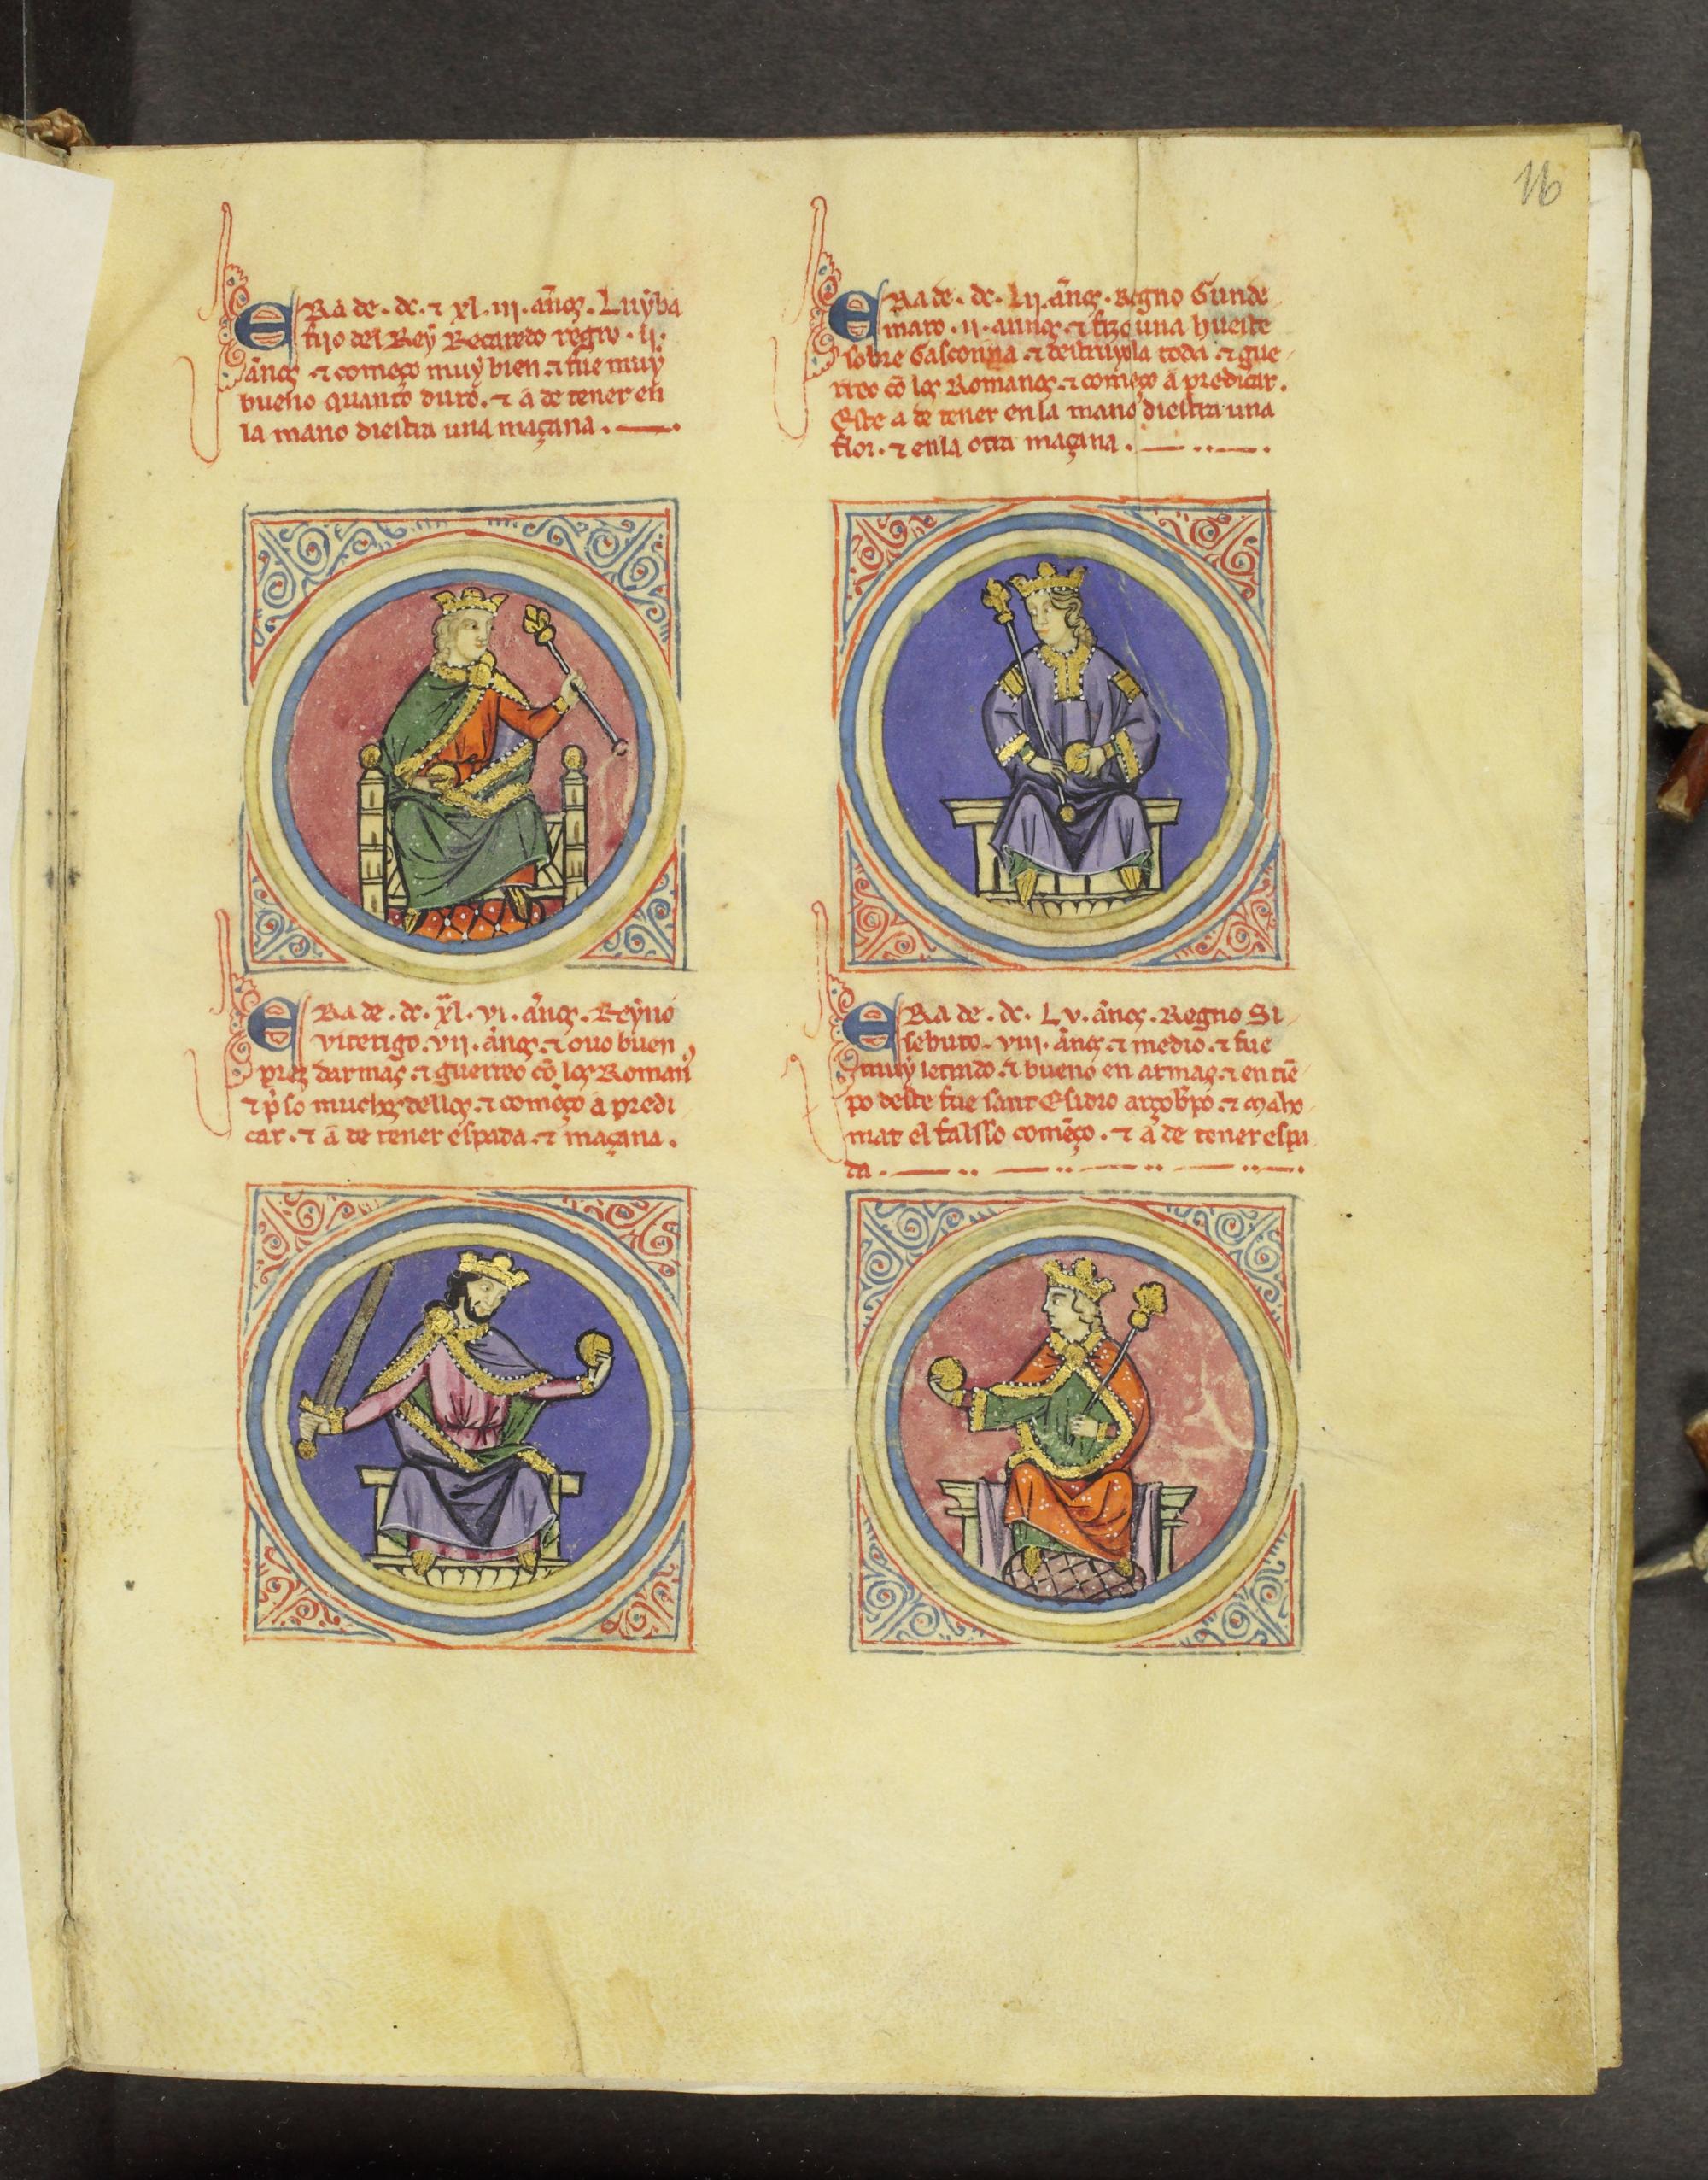 16
ERa de. dc. ⁊ xl. iii. ãnos. Luyba
fijo del Rey Recaredo regno. ij.
ãnos ⁊ começo muy bien. ⁊ fue muy
bueno quanto duro. ⁊ a de tener en
la mano diestra una maçana.
ERa de. dc. xl. vi. ãnos. Reyno
viterigo. vij. ãnos. ⁊ ouo buen
prez darmas. ⁊ guerreo cõ los Roman⁹
⁊ p̃so muchos dellos. ⁊ começo a predi
car. ⁊ a de tener espada. ⁊ maçana.
ERa de. dc. Lij. ãnos. Regno Gunde
maro. ii. annos. ⁊ fizo una hueste
sobre Gasconna. ⁊ destruyola toda. ⁊ gue
rreo cõ los Romanos. ⁊ começo a predicar.
Este a de tener en la mano diestra una
flor. ⁊ en la otra maçana.
ERa de. dc. Lv. ãnos. Regno Si
sebuto. viii. ãnos. ⁊ medio. ⁊ fue
muy letrado. ⁊ bueno en armas. ⁊ en tiẽ
po deste fue sant Esidro arçob̃po. ⁊ Maho
mat el falsso começo. ⁊ a de tener espa
da.